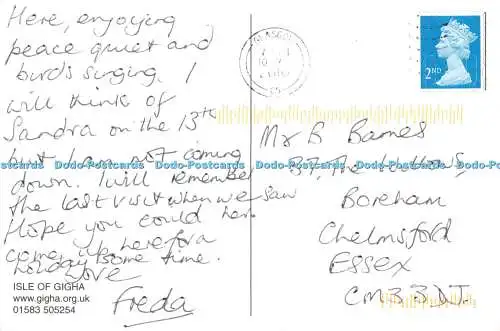 Here, enjoying
peace quiet and
birds singing. I
will think of
Sandra on the 13th
but I am not coming
down. I will remember
the last visit when we saw
Hope you could
come up here for a
holiday some time.
Love
Freda
ISLE OF GIGHA
www.gigha.org.uk
01583 505254
GLASGOW
2ND
Mr B Barnes
37, The
Boreham
Chelmsford
ESSEX
CM3 3
Dodo-Postcards Dodo-Postcards Dodo-Postcards Dodo-Postcards Dodo-Postcards